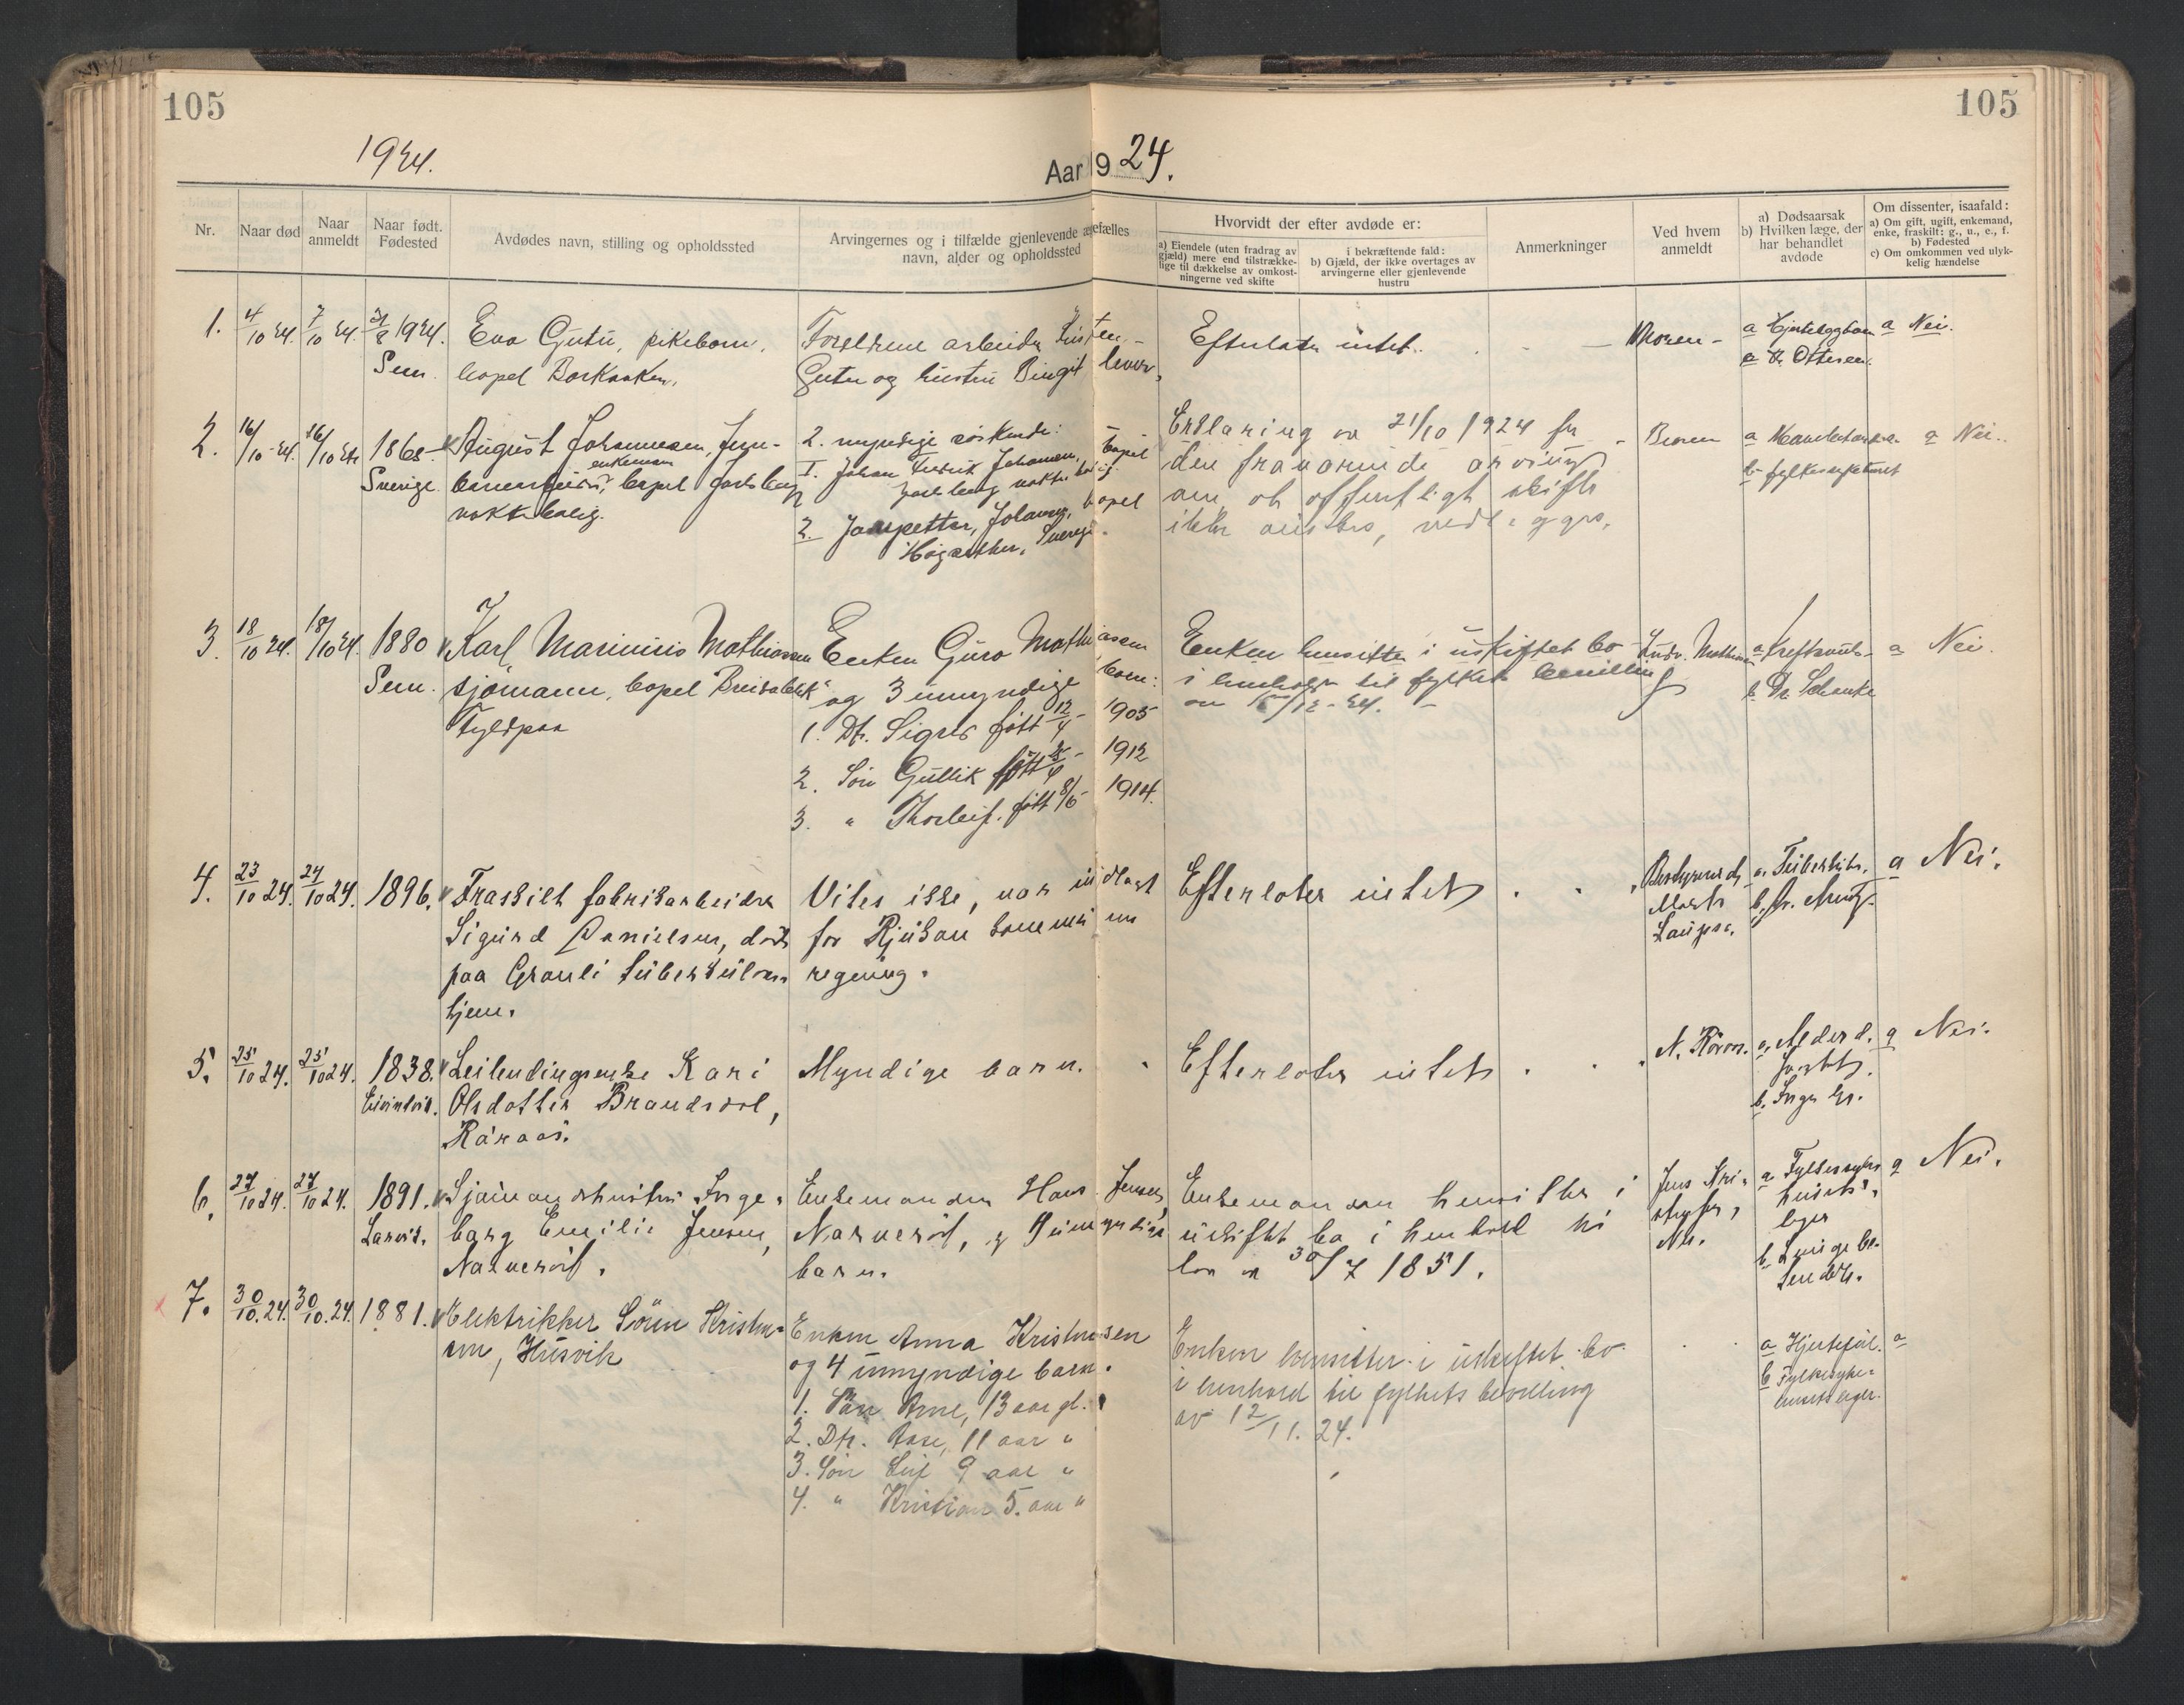 105
105
1924.
Aar 1924.
Nr.
Naar død
Naar anmeldt
Naar født.
Fødested
Avdødes navn, stilling og opholdssted
Arvingernes og i tilfælde gjenlevende ægtefælles
navn, alder og opholdssted
Hvorvidt der efter avdøde er:
a) Eiendele (uten fradrag av
gjæld) mere end tilstrække-
lige til dækkelse av omkost-
ningerne ved skifte
i bekræftende fald:
b) Gjæld, der ikke overtages av
arvingerne eller gjenlevende
hustru
Anmerkninger
Ved hvem
anmeldt
a) Dødsaarsak
b) Hvilken læge, der
har behandlet
avdøde
Om dissenter, isaafald:
a) Om gift, ugift, enkemand,
enke, fraskilt: g., u., e., f.
b) Fødested
c) Om omkommen ved ulyk-
kelig hændelse
1. 4/10 24. 7/10 24. 8 1924. Eva Gutu, pikebarn, Forældrene arbeider Efterlater intet. Moren - a a Nei.
Sem. bopel Borkaaken. Gutu og hustru Birgit lever. Dr. Ottersen.
2. 16/10 24. 16/10 24 1868 August Johannesen, Jern- 2. myndige søskende: Erklæring av 21/10 1924 fra Broren a a Nei.
Sverige enkemann, bopel Jarlsberg 1. Johan Fredrik Johansen, bopel den fraværende arving b. fylkessykehuset
vokterbolig. Jarlsberg vokterbolig. om at offentligt skifte
2. Johansen, bopel ikke ønskes, vedlegges.
Sverige.
3. 18/10 24. 18/10 24. 1880 Karl Marinius Mathiasen Enken Guro Mathiasen Enken hensitter i uskiftet bo a a Nei.
Sem. sjømann, bopel "Breidablik" og 3 umyndige barn: i henhold til fylkets bevilling b. Dr. Schenke
Fyldpaa 1. Dtr. Sigrid født 12/4 - 1905 /12 - 24.
2. Søn Gullik født 1912
3. " Thorleif. født 8/5 - 1914.
4. 23/10 24. 24/10 24. 1896. Fraskilt fabrikarbeider Vites ikke, var indlagt Efterlater intet . . a. Tuberkulose. a Nei.
Sigurd Danielsen, død for Rjukan kommunes
paa Grauli tuberkulose- regning.
hjem.
5. 25/10 24. 25/10 24. 1838. Leilendingsenke Kari Myndige barn. . Efterlater intet . . N. Råraas. a. Alderd. a Nei.
Olsdotter Brandsdal, b. Ingen
Råraas.
6. 27/10 24. 27/10 24. 1891. Sjømandshustru Inge- Enkemanden Hans Jensen, Enkemanden hensitter i Jens Kri- a Fylkessyke- a Nei.
Larvik. borg Emilie Jensen, Narverød, og 9 umyndige uskiftet bo i henhold til stoffer, husets
Narverød. barn. lov av 30/7 1851. læger
7. 30/10.24. 30/10.24. 1881. Elektrikker Sören Kristen- Enken Anna Kristensen Enken hensitter i uskiftet bo . . a Hjertefeil. a
sen, Husvik og 4 umyndige barn. i henhold til fylkets bevilling b Fylkessyke-
1. Sön Arne, 13 aar gl. av 12/11. 24. husets læger.
2. Dtr. Aase, 11 aar "
3. Sön Leif 9 aar "
4. " Kristian 5. aar "